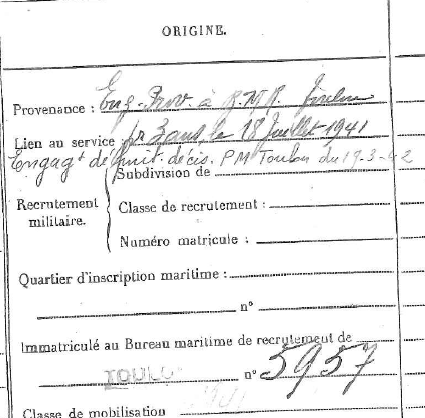 ORIGINE.
Provenance : Eng. Prov. à R.M.R. Toulon
Lien au service : pr 3 ans, le 18 Juillet 1941
Engagt définit. décis. PM Toulon du 19-3-42
Subdivision de
Recrutement militaire.
Classe de recrutement :
Numéro matricule :
Quartier d'inscription maritime :
n°
Immatriculé au Bureau maritime de recrutement de
TOULON n° 5957
Classe de mobilisation